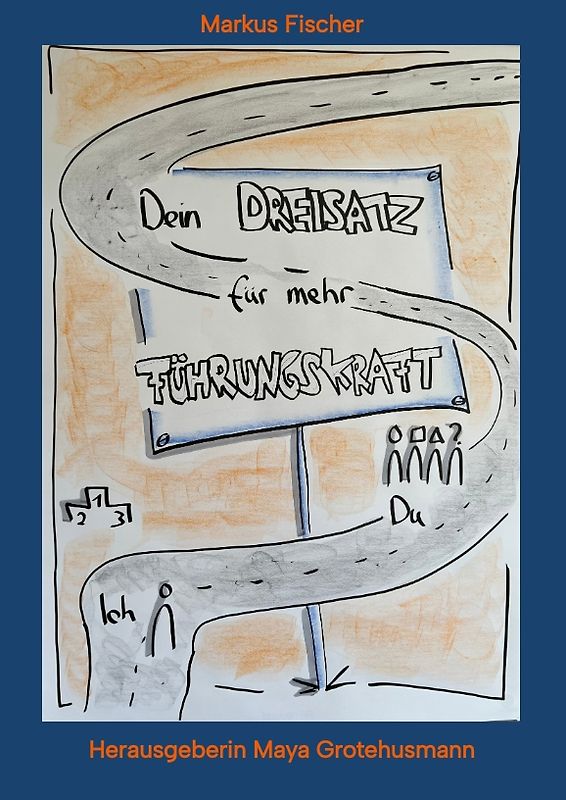 Markus Fischer
Dein DREISATZ
für mehr
FÜHRUNGSKRAFT
?
Du
1
2 3
Ich
Herausgeberin Maya Grotehusmann